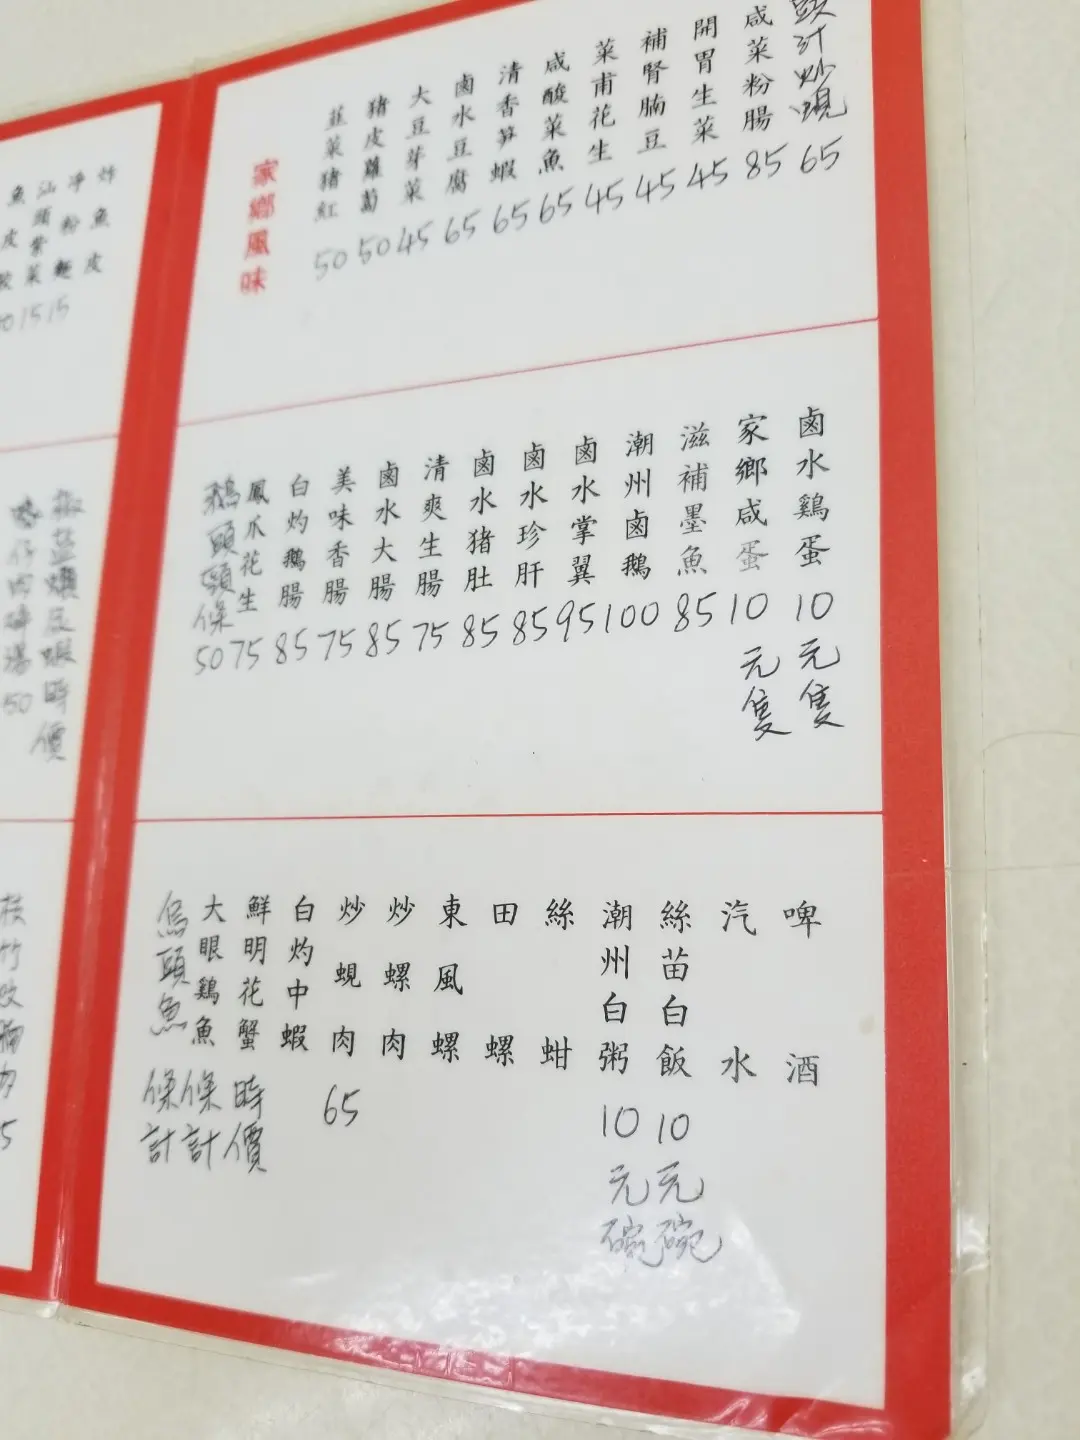 豉汁炒蜆 65
咸菜粉腸 85
開胃生菜 45
補腎腩豆 45
菜甫花生 45
咸酸菜魚 65
清香笋蝦 65
鹵水豆腐 65
大豆芽菜 45
猪皮蘿蔔 50
韮菜猪紅 50
家鄉風味
鹵水鷄蛋 10元隻
家鄉咸蛋 10元隻
滋補墨魚 85
潮州鹵鵝 100
鹵水掌翼 95
鹵水珍肝 85
鹵水猪肚 85
清爽生腸 75
鹵水大腸 85
美味香腸 75
白灼鵝腸 85
鳳爪花生 75
鵝頭頸條 50
啤酒
汽水
絲苗白飯 10元碗
潮州白粥 10元碗
絲蚶
田螺
東風螺
炒螺肉
炒蜆肉 65
白灼中蝦
鮮明花蟹 時價
大眼鷄魚 條計
烏頭魚 條計
炸魚皮
净粉麵 15
汕頭紫菜 15
魚皮餃
椒鹽瀨尿蝦 時價
50